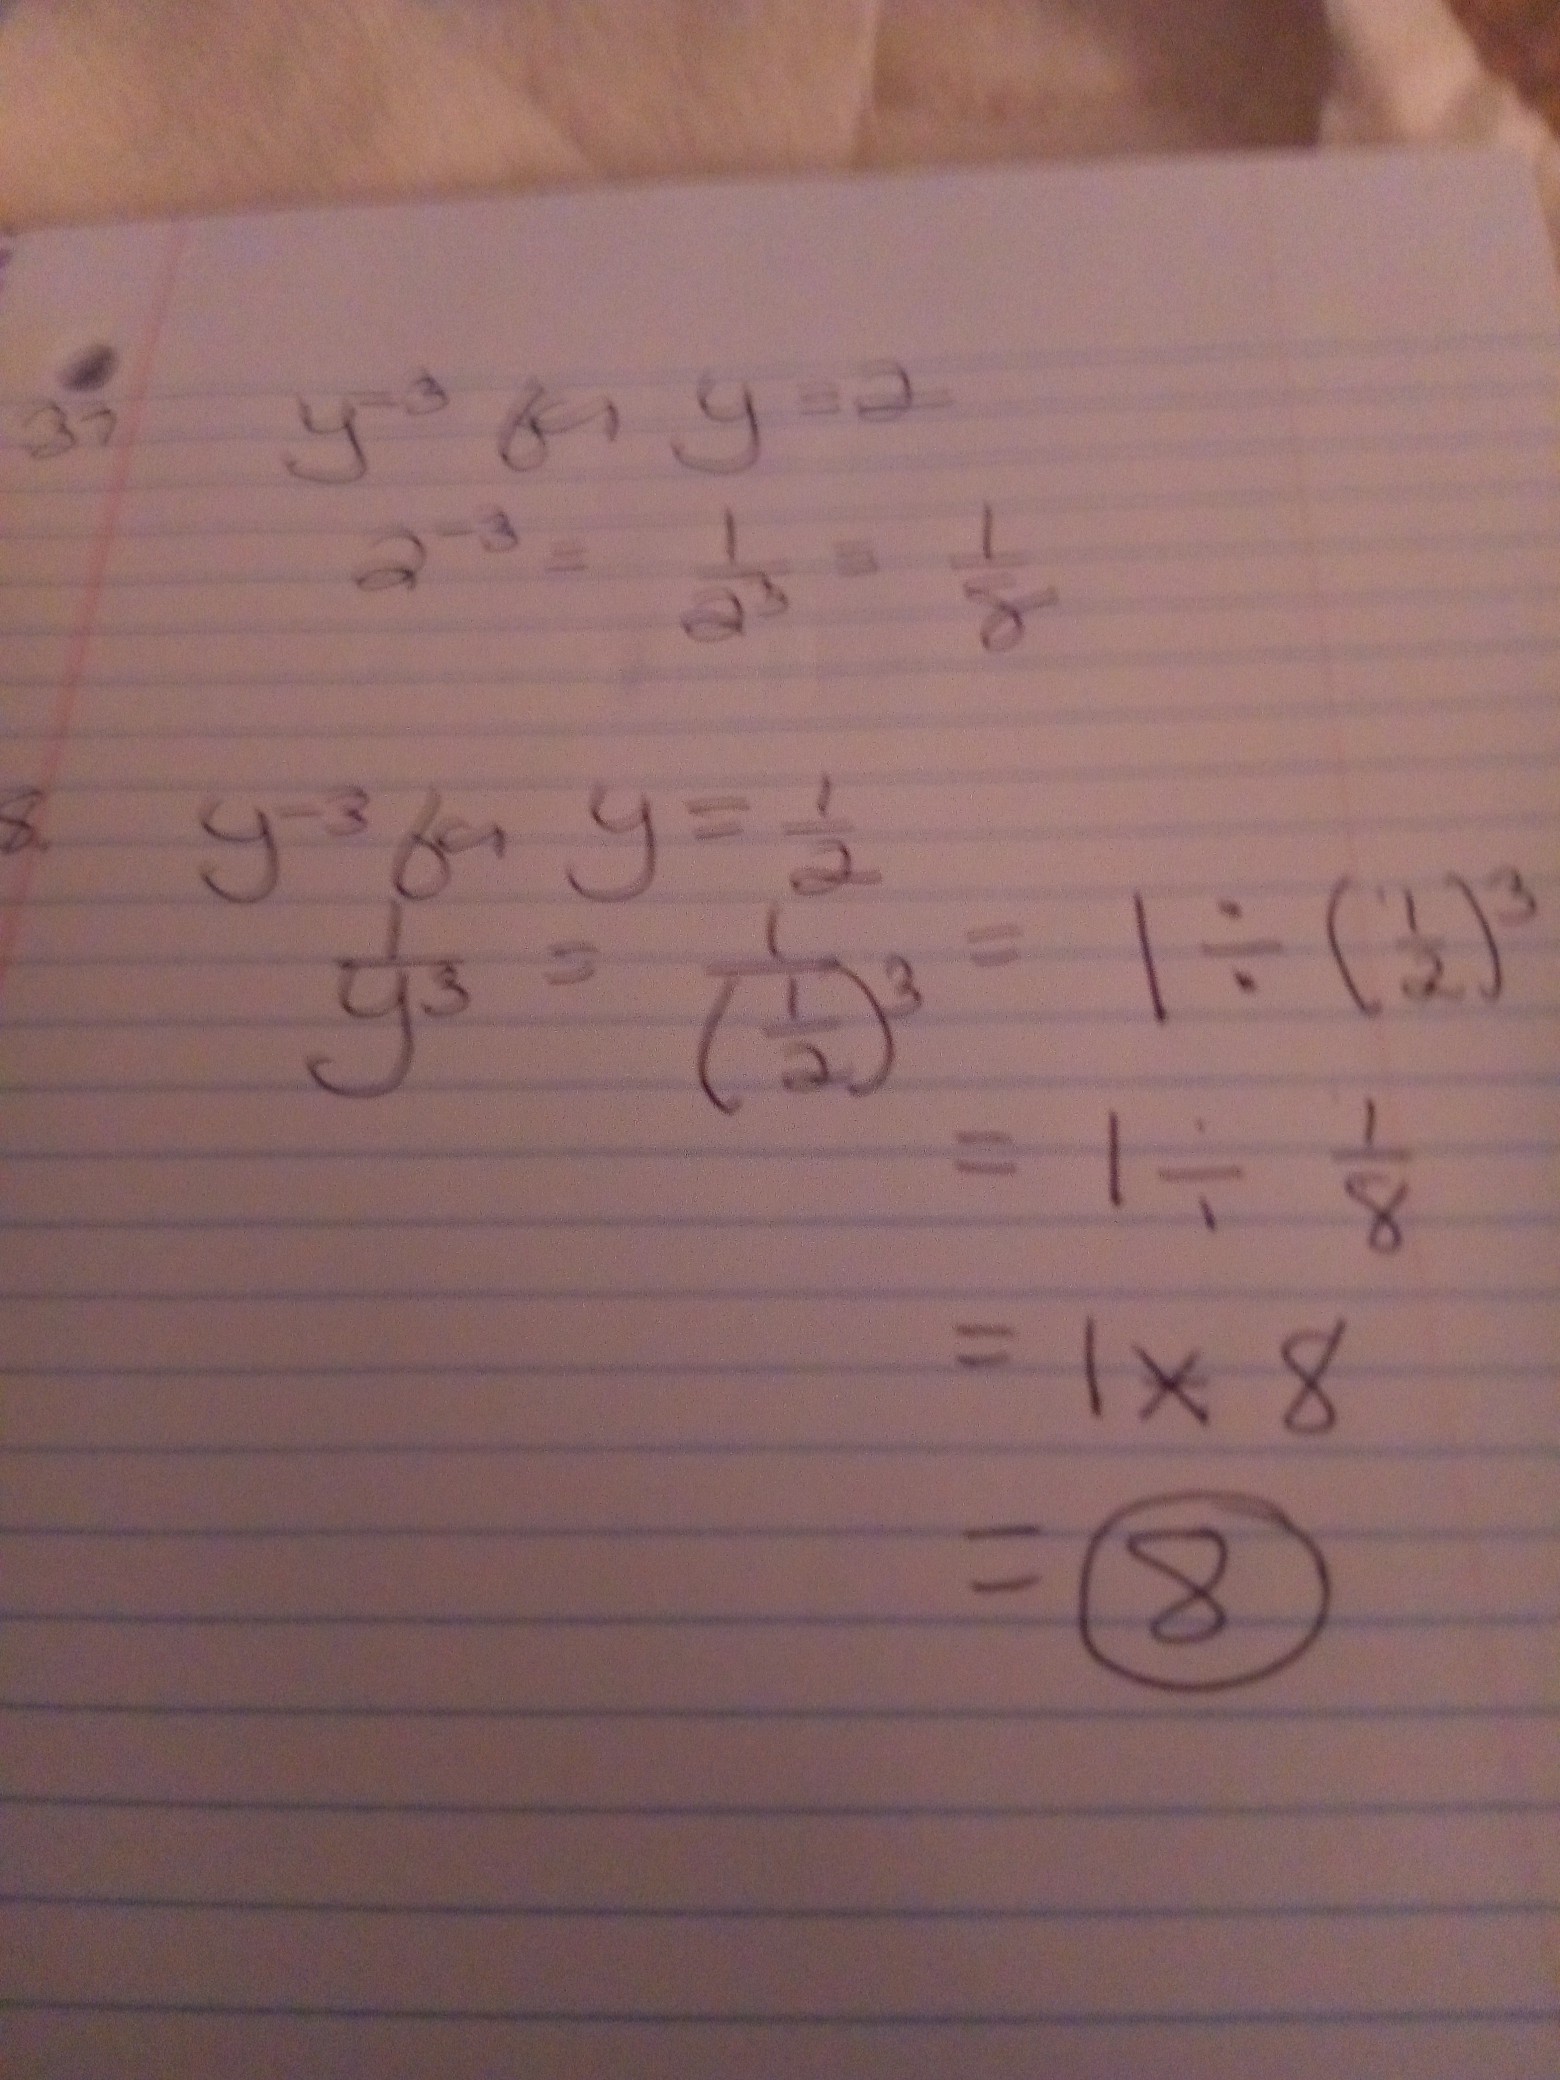 37 y⁻³ for y = 2
2⁻³ = 1/2³ = 1/8
8. y⁻³ for y = 1/2
1/y³ = 1/(1/2)³ = 1 ÷ (1/2)³
= 1 ÷ 1/8
= 1 × 8
= 8